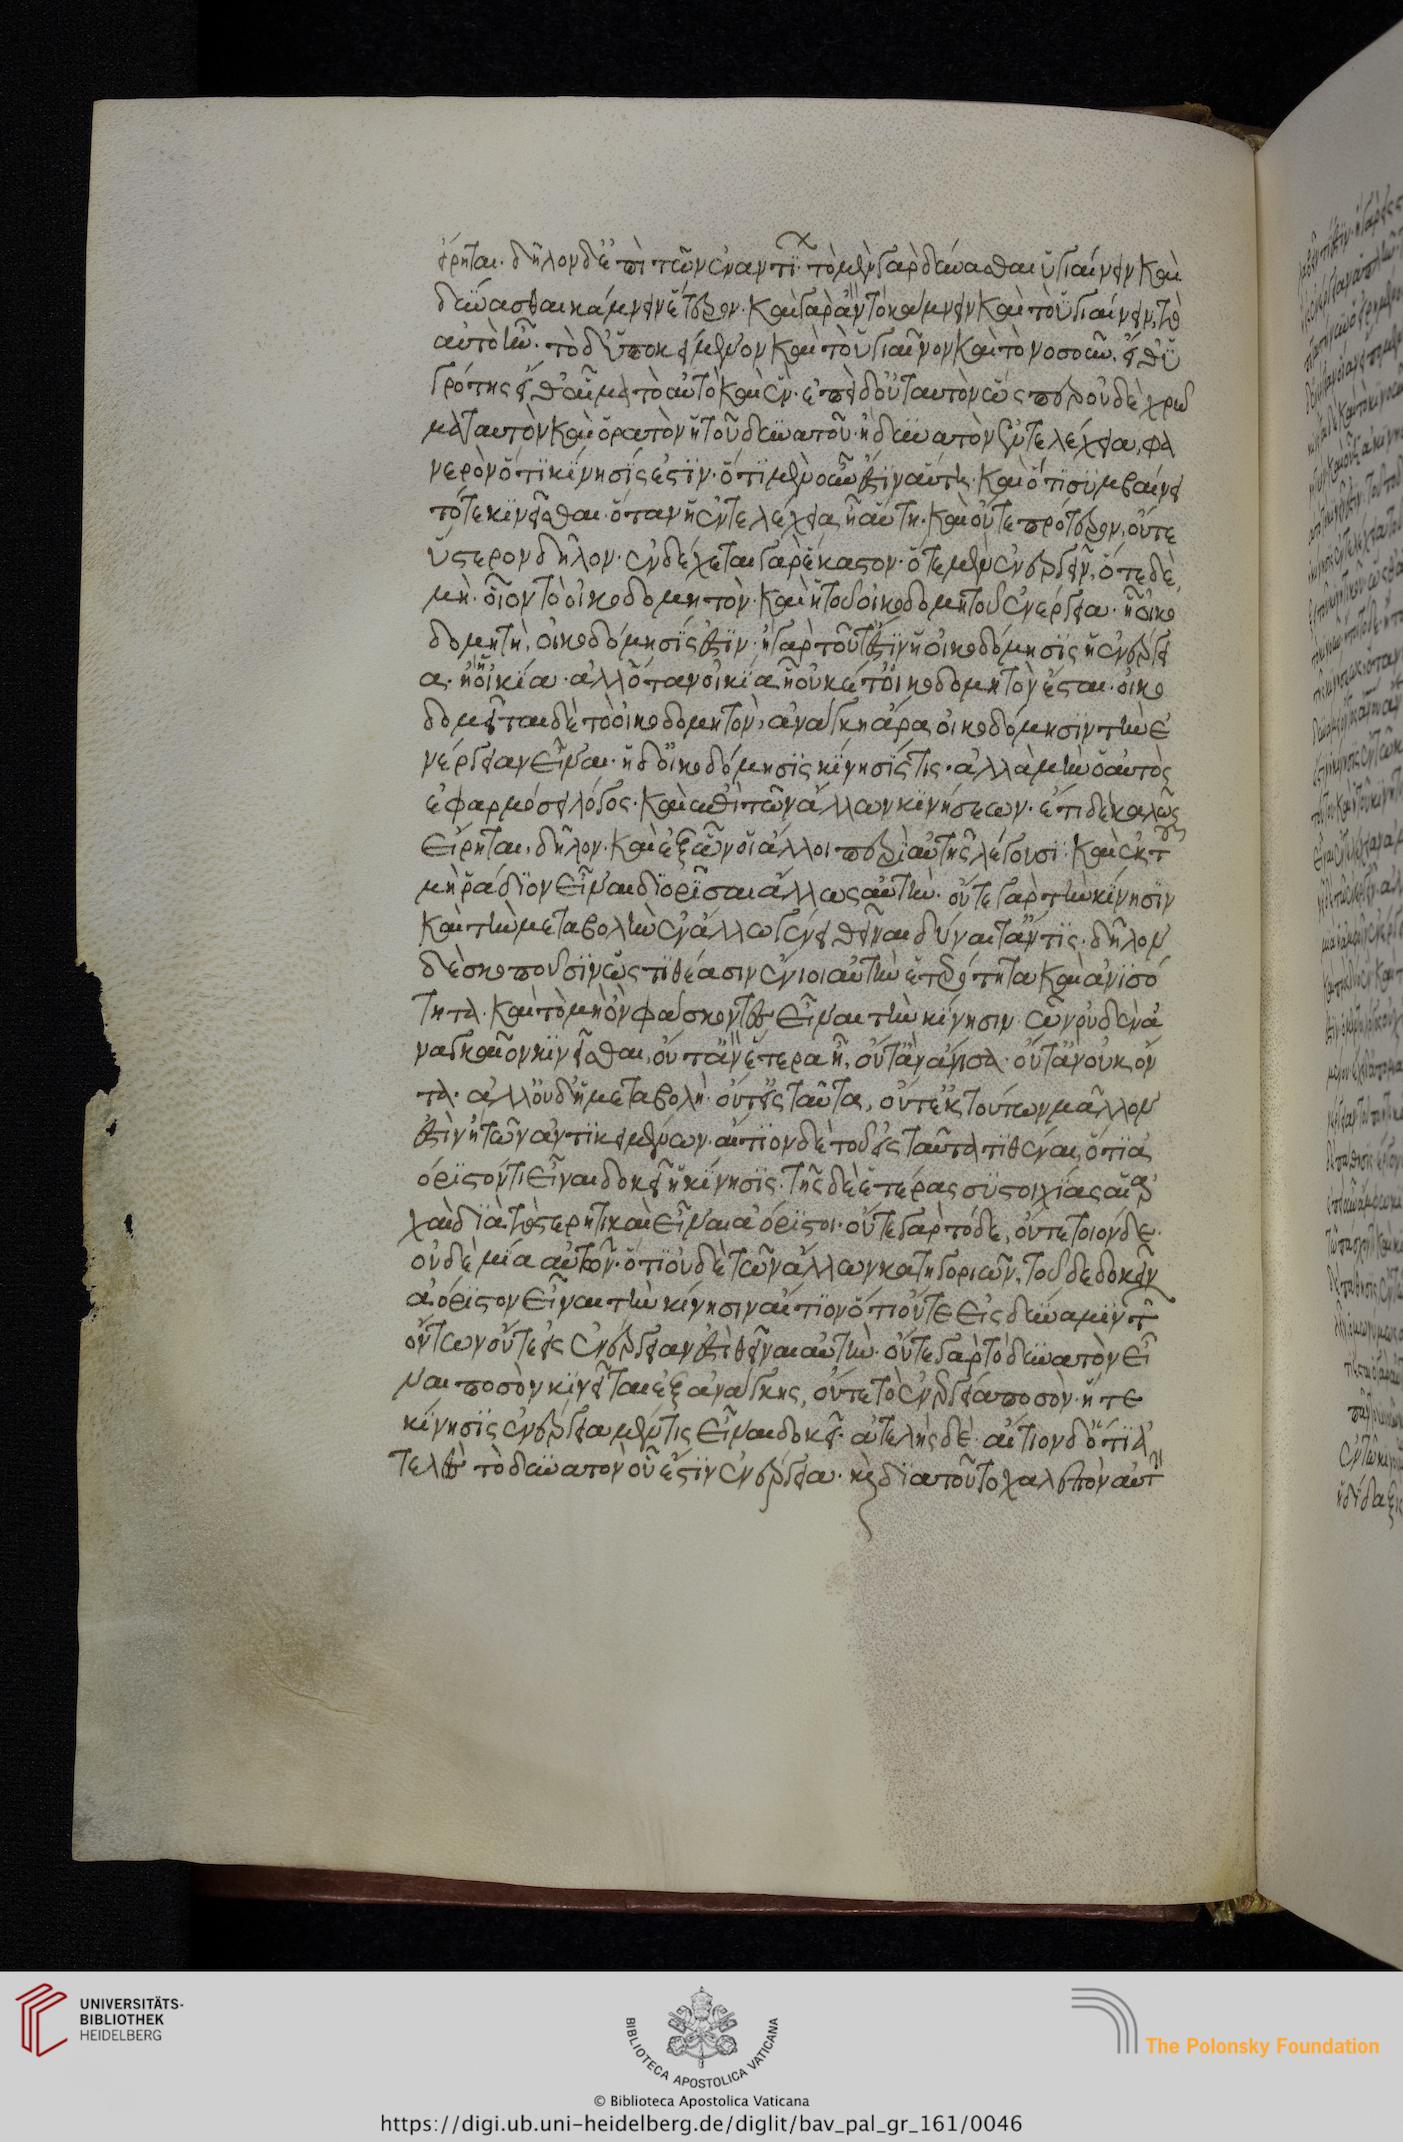 είρηται· δῆλον δ' ἐπὶ τῶν ἐναντί· τὸ μὲν γὰρ δύνασθαι ὑγιαίνειν καὶ
δύνασθαι κάμνειν ἕτερον· καὶ γὰρ ἂν τὸ κάμνειν καὶ τὸ ὑγιαίνειν, τὸ
αὐτὸ ἦν· τὸ δ' ὑποκείμενον καὶ τὸ ὑγιαῖνον καὶ τὸ νοσοῦν, εἴθ' ὑ
γρότης εἴθ' αἷμα τὸ αὐτὸ καὶ ἕν· ἐπεὶ δ' οὐ ταυτὸν ὥσπερ οὐδὲ χρῶ
μα ταυτὸν καὶ ὁρατὸν ἡ τοῦ δυνατοῦ ᾗ δυνατὸν ἐντελέχεια, φα
νερὸν ὅτι κίνησίς ἐστιν· ὅτι μὲν οὖν ἐστιν αὕτη· καὶ ὅτι συμβαίνει
τότε κινεῖσθαι ὅταν ἡ ἐντελέχεια ᾖ αὕτη· καὶ οὔτε πρότερον, οὔτε
ὕστερον δῆλον· ἐνδέχεται γὰρ ἕκαστον· ὁτὲ μὲν ἐνεργεῖν, ὁτὲ δὲ
μὴ· οἷον τὸ οἰκοδομητὸν· καὶ ἡ τοῦ οἰκοδομητοῦ ἐνέργεια ᾗ οἰκο
δομητὴ, οἰκοδόμησίς ἐστιν· ἢ γὰρ τοῦτ' ἐστὶν ἡ οἰκοδόμησις ἡ ἐνέργει
α· ἢ ἡ οἰκία· ἀλλ' ὅταν οἰκία ᾖ οὐκέτ' οἰκοδομητὸν ἔσται· οἰκο
δομεῖται δὲ τὸ οἰκοδομητὸν, ἀνάγκη ἄρα οἰκοδόμησιν τὴν ἐ
νέργειαν εἶναι· ἡ δ' οἰκοδόμησις κίνησίς τις· ἀλλὰ μὴν ὁ αὐτὸς
ἐφαρμόσει λόγος· καὶ ἐπὶ τῶν ἄλλων κινήσεων· ἔτι δὲ καλῶς
εἴρηται, δῆλον· καὶ ἐξ ὧν οἱ ἄλλοι περὶ αὐτῆς λέγουσι· καὶ ἐκ τ
μὴ ῥάδιον εἶναι διορίσαι ἄλλως αὐτὴν· οὔτε γὰρ τὴν κίνησιν
καὶ τὴν μεταβολὴν ἐν ἄλλῳ γένει θεῖναι δύναιτ' ἄν τις· δῆλον
δὲ σκοποῦσιν ὥς τιθέασιν ἔνιοι αὐτὴν ἑτερότητα καὶ ἀνισό
τητα· καὶ τὸ μὴ ὂν φάσκοντες εἶναι τὴν κίνησιν ὧν οὐδὲν ἀ
ναγκαῖον κινεῖσθαι, οὔτ' ἂν ἕτερα ᾖ, οὔτ' ἂν ἄνισα· οὔτ' ἂν οὐκ ὄν
τα· ἀλλ' οὐδ' ἡ μεταβολὴ οὔτ' εἰς ταῦτα, οὔτ' ἐκ τούτων μᾶλλον
ἐστὶν ἢ τῶν ἀντικειμένων· αἴτιον δὲ τοῦ εἰς ταῦτα τιθέναι, ὅτι ἀ
όριστόν τι εἶναι δοκεῖ ἡ κίνησις· τῆς δὲ ἑτέρας συστοιχίας αἱ ἀρ
χαὶ διὰ τὸ στερητικαὶ εἶναι ἀόριστοι· οὔτε γὰρ τόδε, οὔτε τοιόνδε·
οὐδεμία αὐτῶν· ὅτι οὐδὲ τῶν ἄλλων κατηγοριῶν, τοῦ δὲ δοκεῖν
ἀόριστον εἶναι τὴν κίνησιν αἴτιον ὅτι οὔτε εἰς δύναμιν τ
ὄντων οὔτε εἰς ἐνέργειαν ἐστὶ θεῖναι αὐτὴν· οὔτε γὰρ τὸ δυνατὸν εἶ
ναι ποσὸν κινεῖται ἐξ ἀνάγκης, οὔτε τὸ ἐνεργείᾳ ποσὸν· ἥ τε
κίνησις ἐνέργεια μέν τις εἶναι δοκεῖ· ἀτελὴς δὲ· αἴτιον δ' ὅτι ἀ
τελὲς τὸ δυνατὸν οὗ ἐστὶν ἐνέργεια· καὶ διὰ τοῦτο χαλεπὸν αὐτὴ
UNIVERSITÄTS-
BIBLIOTHEK
HEIDELBERG
BIBLIOTECA APOSTOLICA VATICANA
The Polonsky Foundation
© Biblioteca Apostolica Vaticana
https://digi.ub.uni-heidelberg.de/diglit/bav_pal_gr_161/0046